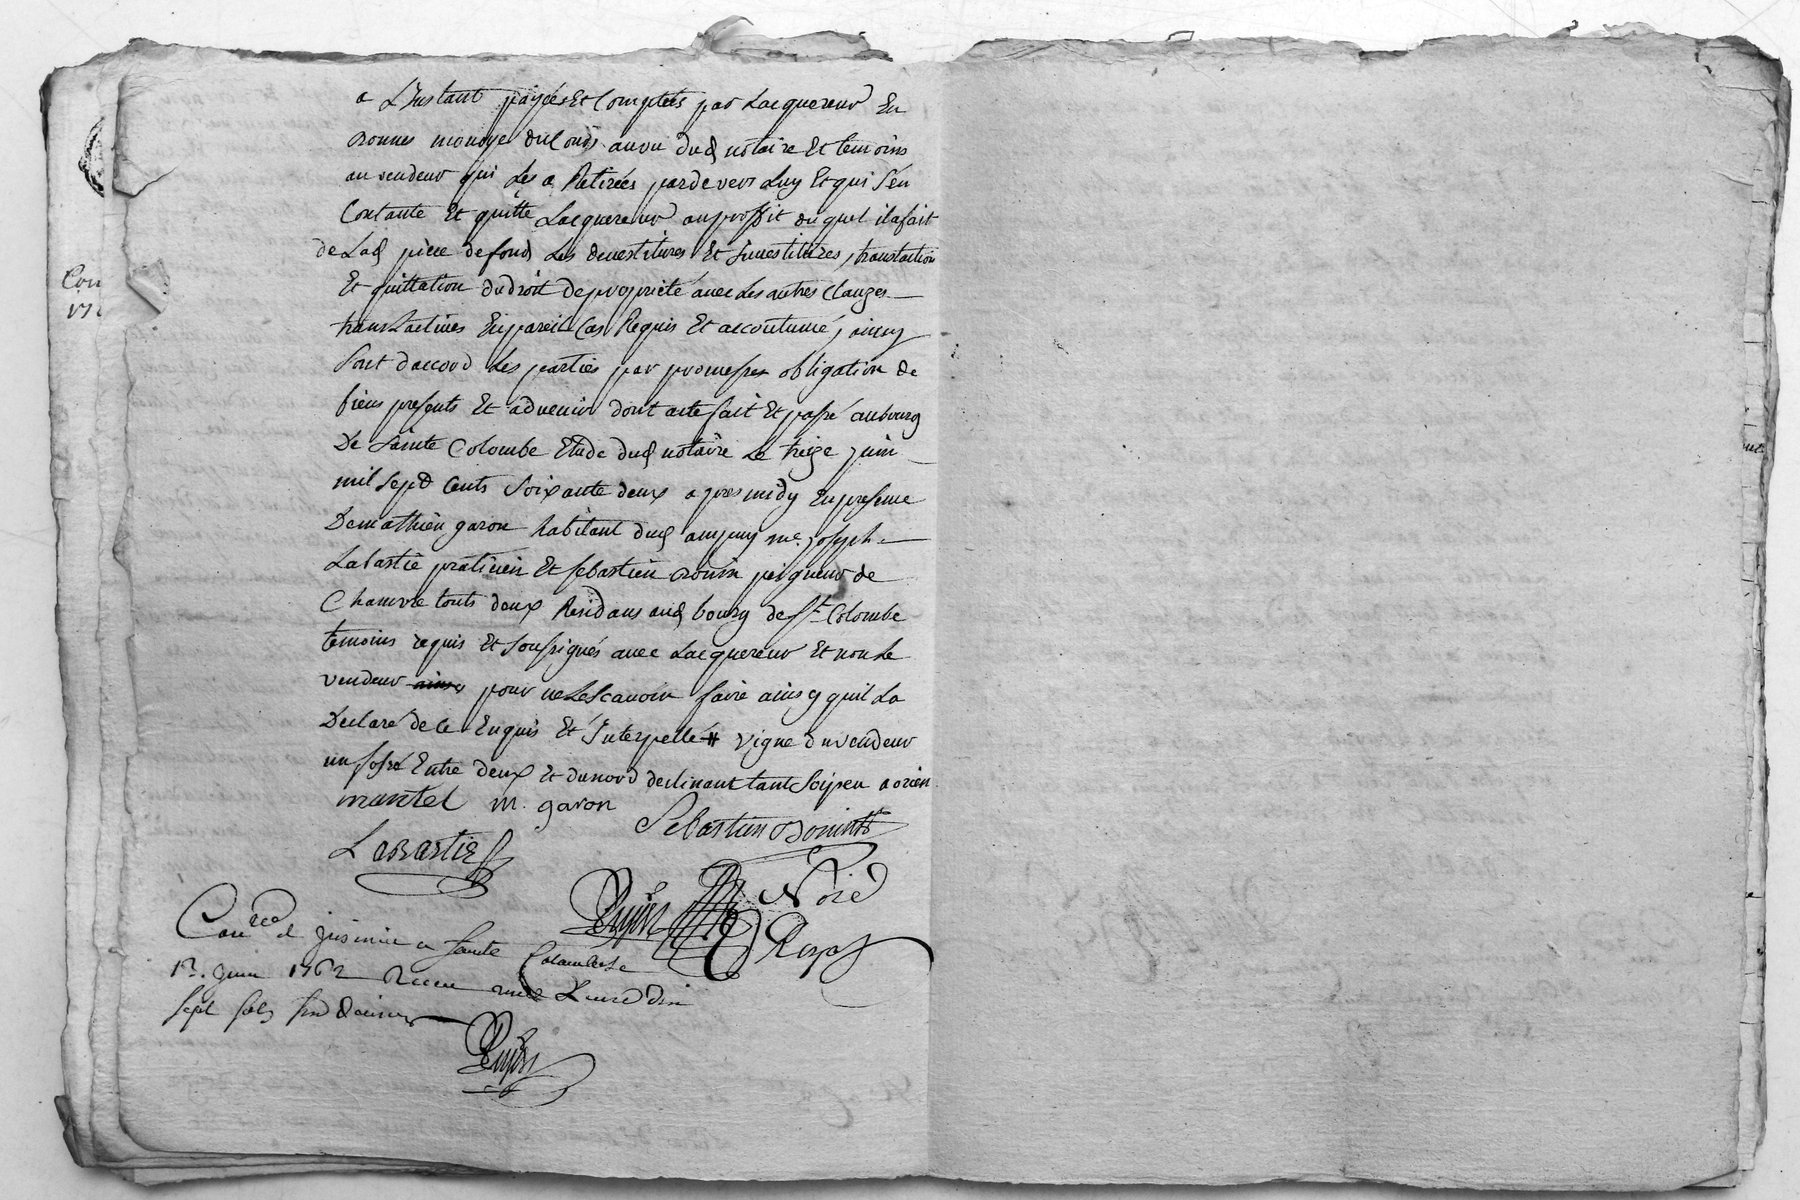 a L'Instant payées Et Comptées par Lacquereur En
Bonnes monoye du Cours au vu dud notaire Et temoins
au vendeur qui Les a Retirées par devers Luy Et qui s'en
Contante Et quitte Lacquereur au proffit du quel il a fait
de Lad piece de fond Les devestitures Et Investitures, translation
Et quittation du droit de propriété avec Les autres Clauzes
translatives En pareil Cas Requis Et accoutumé, ainsy
sont daccord Les parties par promesses obligation de
biens presents Et advenir dont acte fait Et passé au bourg
De Sainte Colombe Etude dud notaire Le treize juin
mil sept Cents Soixante deux apres midy En presence
De mathieu garon habitant dud me. joseph
Labastie praticien Et sebastien Bonin peigneur de
Chanvre touts deux Residans aud bourg de St. Colombe
temoins requis Et soussignés avec Lacquereur Et non Le
vendeur pour ne Le scavoir faire ainsy quil La
Declaré de ce Enquis Et Interpellé # vigne du vendeur
un fossé Entre deux Et du nord declinant tant soi peu a orien
mantel m. garon
Sebastien Bonin
LaBastie
Noie
Royal
Con a Sainte Colombe Le
13. juin 1762 Receu
sept sols six deniers
Con